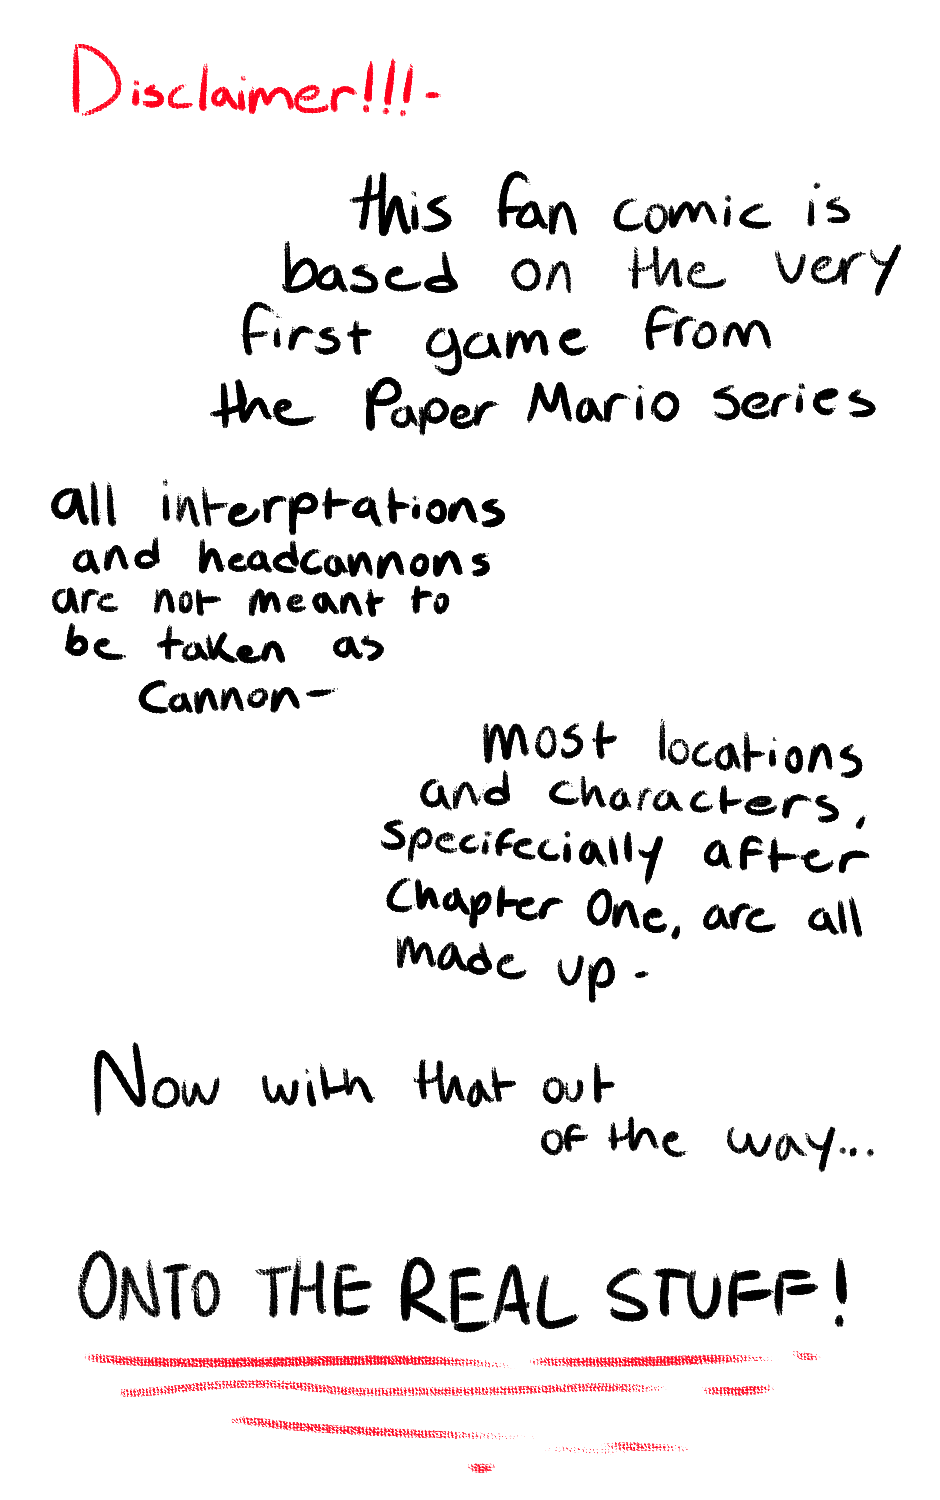 Disclaimer!!!-
this fan comic is
based on the very
first game from
the Paper Mario series
all interptations
and headcannons
are not meant to
be taken as
Cannon-
most locations
and characters,
specifecially after
Chapter One, are all
made up -
Now with that out
of the way...
ONTO THE REAL STUFF!